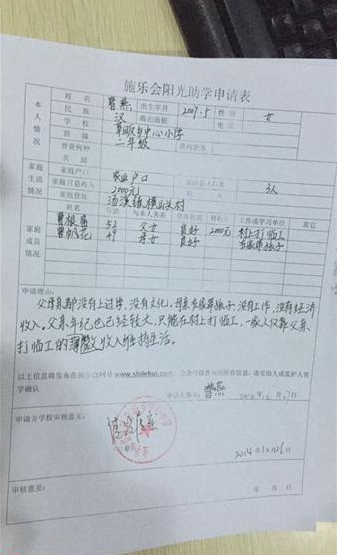 施乐会阳光助学申请表
本人情况
姓名 曹燕 出生年月 2007.5 性别 女
民族 汉 政治面貌 电话
学校 中心小学
班级 二年级 班内职务
曾获何种奖励
家庭生活情况
家庭户口 农业户口
家庭月总收入 2000元 家庭总人口数 3人
家庭住址 汤溪镇 村
家庭成员情况
姓名 年龄 与本人关系 身体状况 月收入 工作或学习单位 其它
曹根 53 父女 良好 2000元 村上打临工
曹 花 49 母女 良好 在家带孩子
申请理由:
父母亲都没有上过学,没有文化。母亲在家带孩子,没有工作,没有经济
收入。父亲年纪也已经较大,只能在村上打临工,一家人仅靠父亲
打临工的薄酬收入维持生活。
以上信息将发布在施乐会网站www.shilehui.com,会众可以查询到所有信息,请受助人或监护人签
字确认
申请人签名: 曹燕
申请方学校审核意见:
2014年12月26日
审核意见:
年 月 日